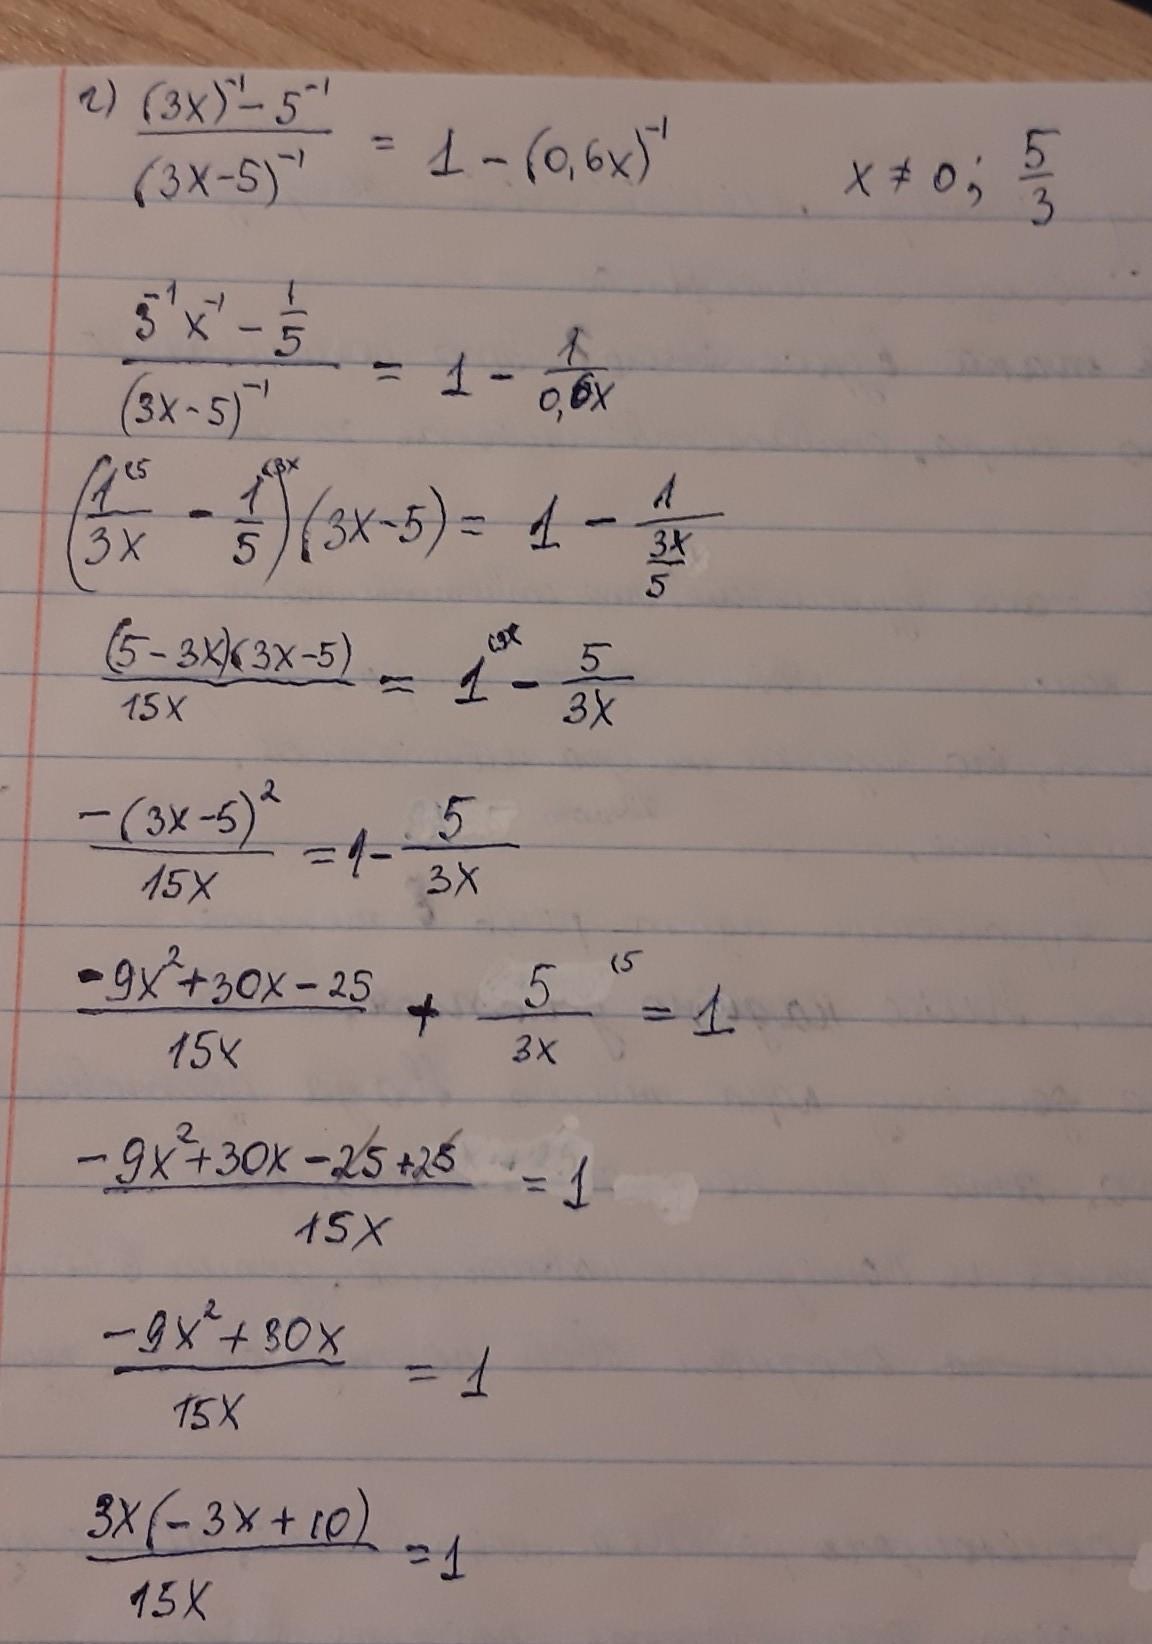 г) ((3x)⁻¹ - 5⁻¹)/((3x-5)⁻¹) = 1 - (0,6x)⁻¹ x ≠ 0; 5/3
(3⁻¹x⁻¹ - 1/5)/((3x-5)⁻¹) = 1 - 1/(0,6x)
(1⁽⁵/(3x) - 1⁽³ˣ/5)(3x-5) = 1 - 1/(3x/5)
((5-3x)(3x-5))/(15x) = 1⁽³ˣ - 5/(3x)
(-(3x-5)²)/(15x) = 1 - 5/(3x)
(-9x²+30x-25)/(15x) + 5⁽⁵/(3x) = 1
(-9x²+30x-25+25)/(15x) = 1
(-9x²+30x)/(15x) = 1
(3x(-3x+10))/(15x) = 1